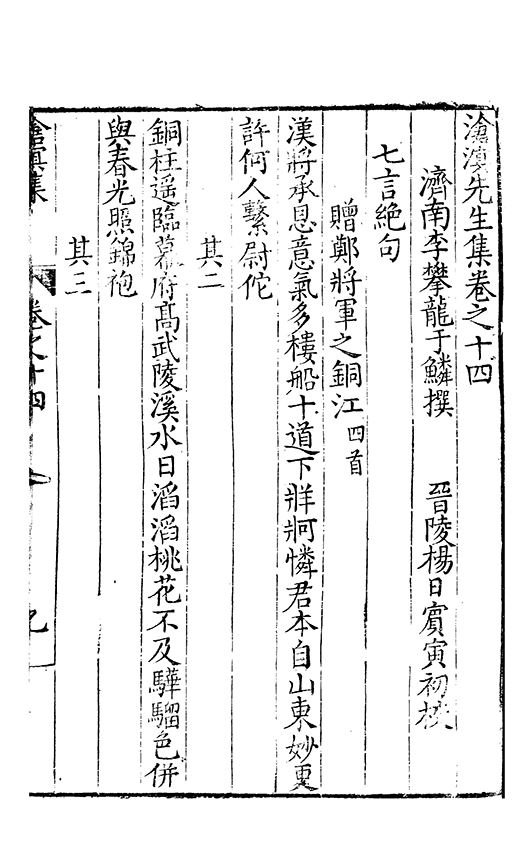 滄溟先生集卷之十四
濟南李攀龍于鱗撰　晉陵楊日賔寅初校
七言絶句
贈鄭將軍之銅江四首
漢將承恩意氣多樓船十道下牂牁憐君本自山東妙更
許何人繫尉佗
其二
銅柱遥臨幕府髙武陵溪水日滔滔桃花不及驊騮色併
與春光照錦袍
其三
滄溟集 卷之十四